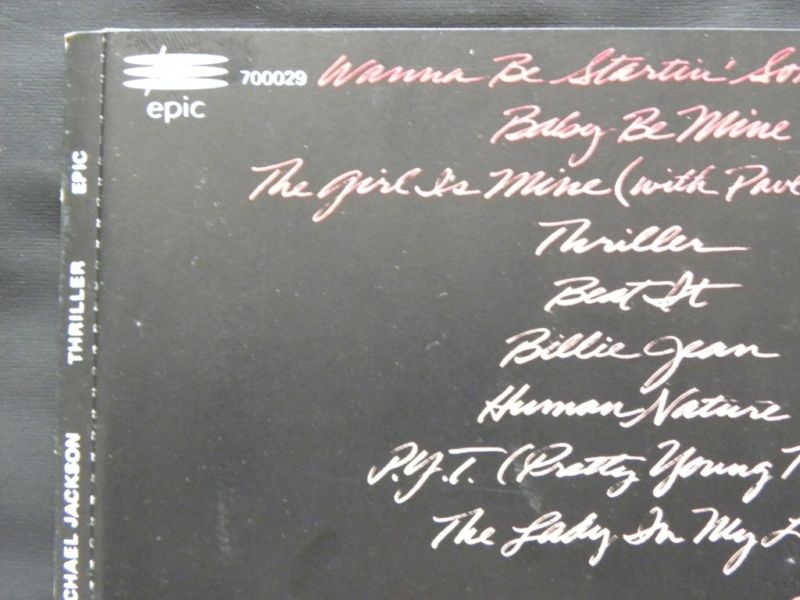 epic
700029 Wanna Be Startin' Som
Baby Be Mine
The Girl Is Mine (with Paul
Thriller
Beat It
Billie Jean
Human Nature
P.Y.T. (Pretty Young T
The Lady In My L
CHAEL JACKSON THRILLER EPIC